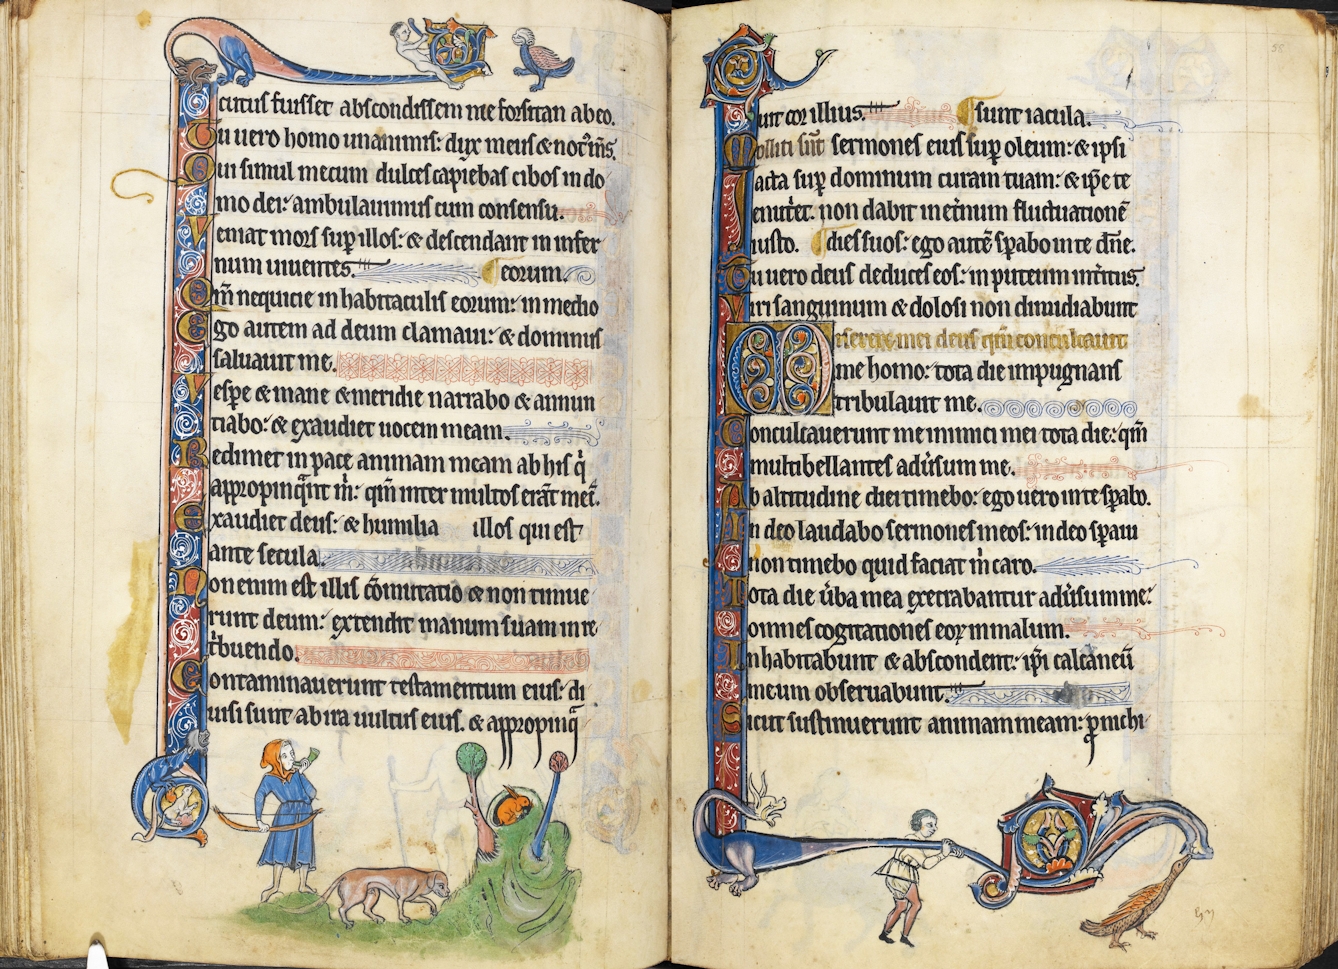 cutus fuisset abscondissem me forsitan ab eo.
Tu uero homo unanimis: dux meus & not' m's.
Qui simul mecum dulces capiebas cibos in do
mo dei: ambulauimus cum consensu.
Veniat mors sup illos: & descendant in infer
num uiuentes. eorum.
Qm̄ nequicie in habitaculis eorum: in medio
Ego autem ad deum clamaui: & dominus
saluauit me.
Vespe & mane & meridie narrabo & annun
tiabo: & exaudiet uocem meam.
Redimet in pace animam meam ab his q̇
appropinq̇nt ṁ: qm̄ inter multos erāt mec̄.
Exaudiet deus: & humilia illos qui est
ante secula.
Non enim est illis cōmutatio & non timue
runt deum: extendit manum suam in re
t'buendo.
Contaminauerunt testamentum eius: di
uisi sunt ab ira uultus eius. & appropinq̇
uit cor illius. sunt iacula.
Molliti sūt sermones eius sup oleum: & ipsi
Iacta sup dominum curam tuam: & ip̄e te
enut'et. non dabit in et'num fluctuationē
iusto. dies suos: ego autē sp̄abo in te dn̄e.
Tu uero deus deduces eos: in puteum int'itus.
Viri sanguinum & dolosi non dimidiabunt
Miserere mei deus qm̄ conculcauit
me homo: tota die impugnans
tribulauit me.
Conculcauerunt me inimici mei tota die: qm̄
multi bellantes adu'sum me.
Ab altitudine diei timebo: ego uero in te sp̄abo.
In deo laudabo sermones meos: in deo sp̄aui
non timebo quid faciat ṁ caro.
Tota die u'ba mea execrabantur adu'sum me:
omnes cogitationes eoꝝ in malum.
Inhabitabunt & abscondent: ip̄i calcaneū
meum obseruabunt.
Sicut sustinuerunt animam meam: ꝑ nichi